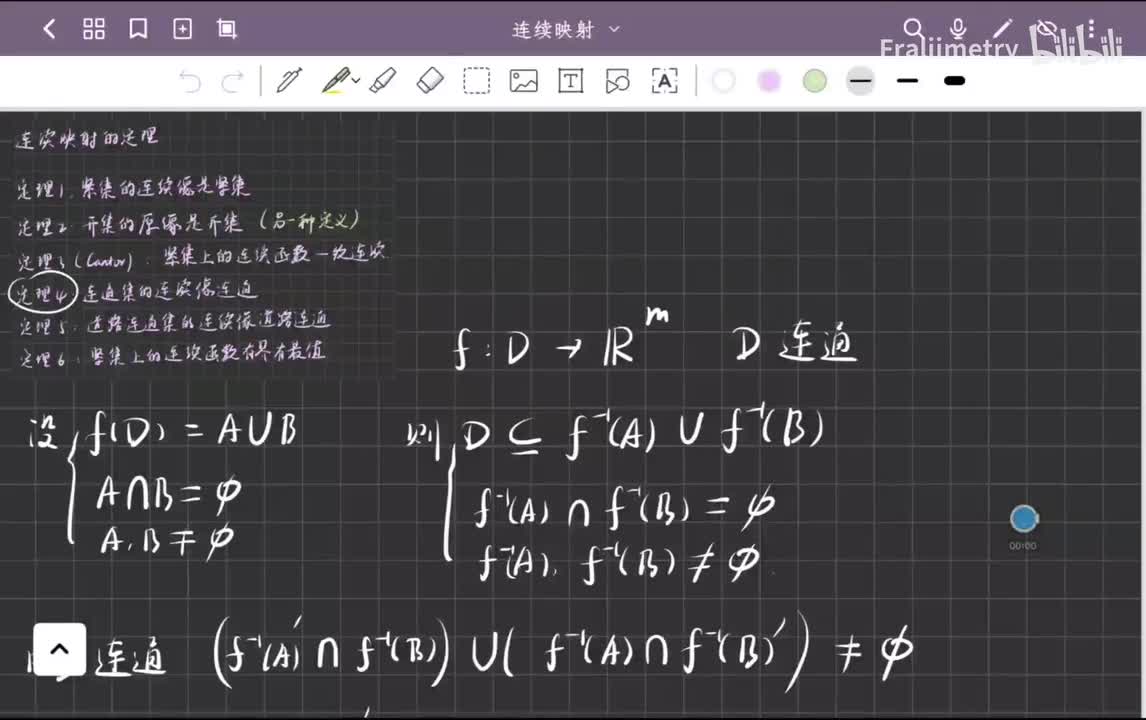 连续映射
Fraliimetry bilibili
连续映射的定理
定理1. 紧集的连续像是紧集
定理2. 开集的原像是开集 (另一种定义)
定理3 (Cantor). 紧集上的连续函数一致连续
定理4. 连通集的连续像连通
定理5. 道路连通集的连续像道路连通
定理6. 紧集上的连续函数有界有最值
f : D → ℝᵐ D 连通
设 f(D) = A∪B 则 D ⊆ f⁻¹(A) ∪ f⁻¹(B)
A∩B = ϕ f⁻¹(A) ∩ f⁻¹(B) = ϕ
A, B ≠ ϕ f⁻¹(A), f⁻¹(B) ≠ ϕ
00:00
连通 (f⁻¹(A)′ ∩ f⁻¹(B)) ∪ ( f⁻¹(A) ∩ f⁻¹(B)′ ) ≠ ϕ